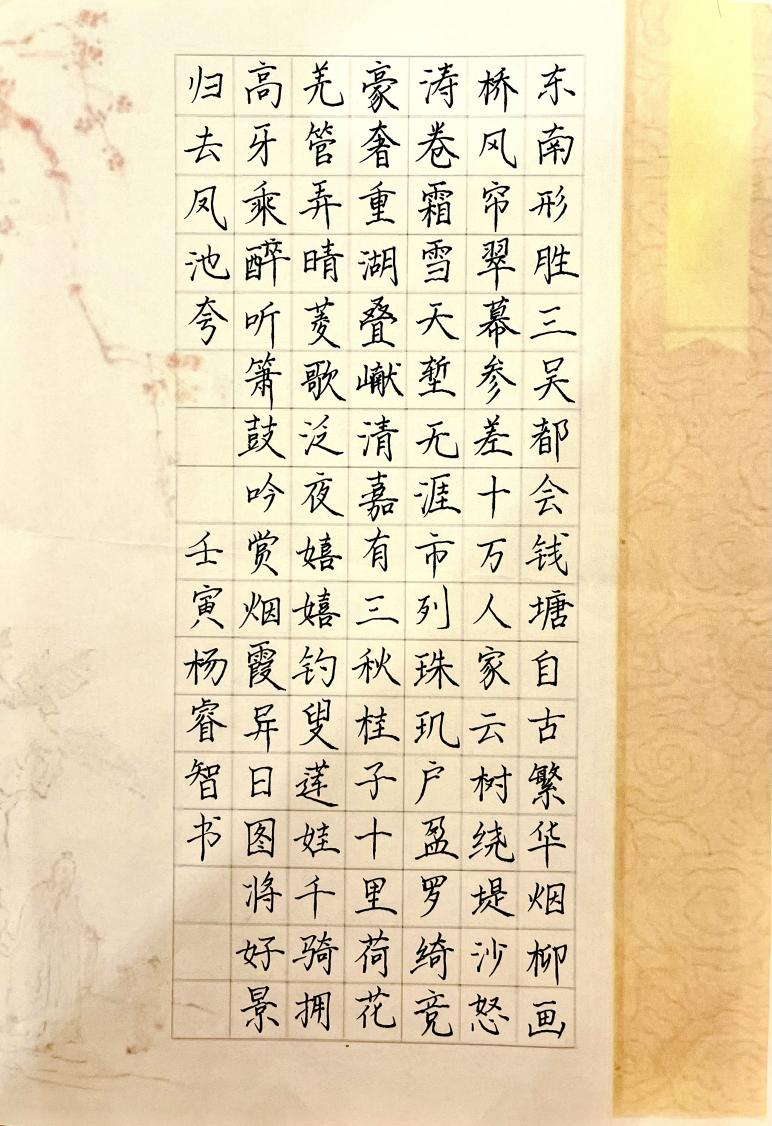 东南形胜三吴都会钱塘自古繁华烟柳画
桥风帘翠幕参差十万人家云树绕堤沙怒
涛卷霜雪天堑无涯市列珠玑户盈罗绮竞
豪奢重湖叠巘清嘉有三秋桂子十里荷花
羌管弄晴菱歌泛夜嬉嬉钓叟莲娃千骑拥
高牙乘醉听箫鼓吟赏烟霞异日图将好景
归去凤池夸 壬寅杨睿智书